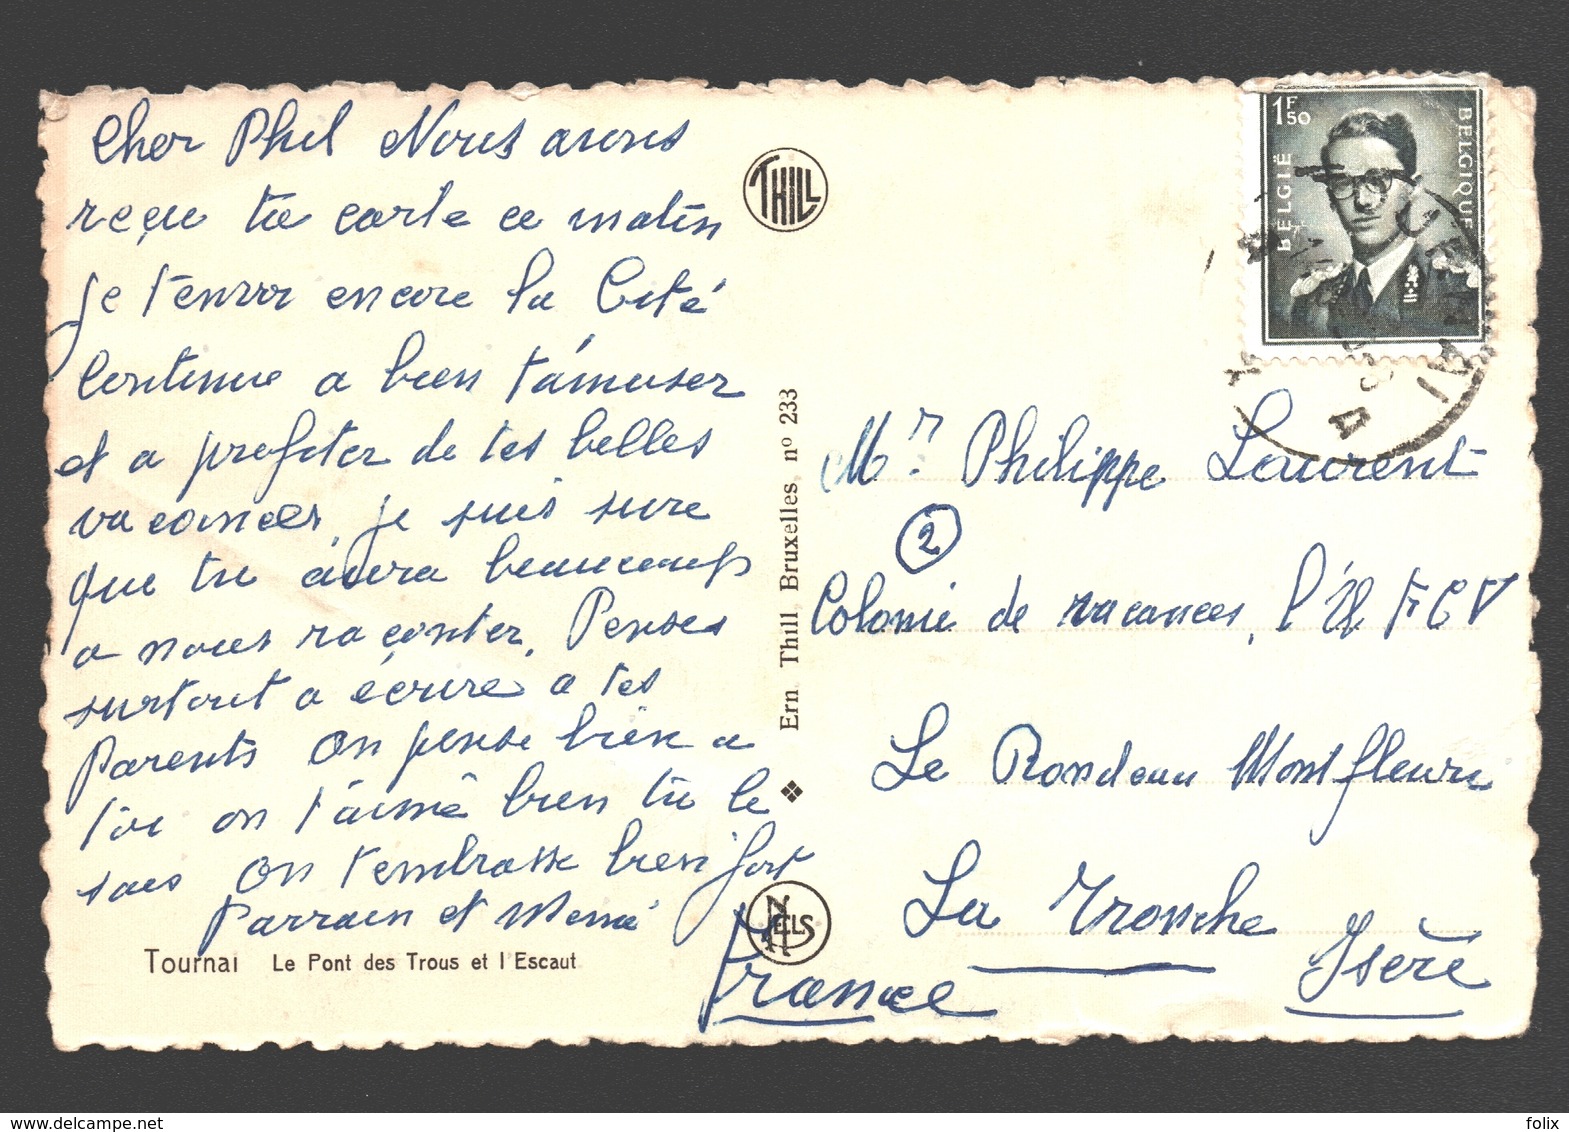 Cher Phil Nous avons
reçu ta carte ce matin
je t'envoi encore la Cité
Continue a bien t'amuser
et a profiter de tes belles
vacances, je suis sure
que tu aura beaucoup
a nous raconter. Penses
surtout a écrire a tes
Parents On pense bien a
toi on t'aime bien tu le
sais On t'embrasse bien fort
Parrain et Mémé
Tournai Le Pont des Trous et l'Escaut
THILL
Ern Thill Bruxelles nº 233
NELS
1F50
BELGIQUE
BELGIË
Mr. Philippe Laurent
2
Colonie de vacances,
Le Rondeau Montfleury
La Tronche
Isère
France
folix